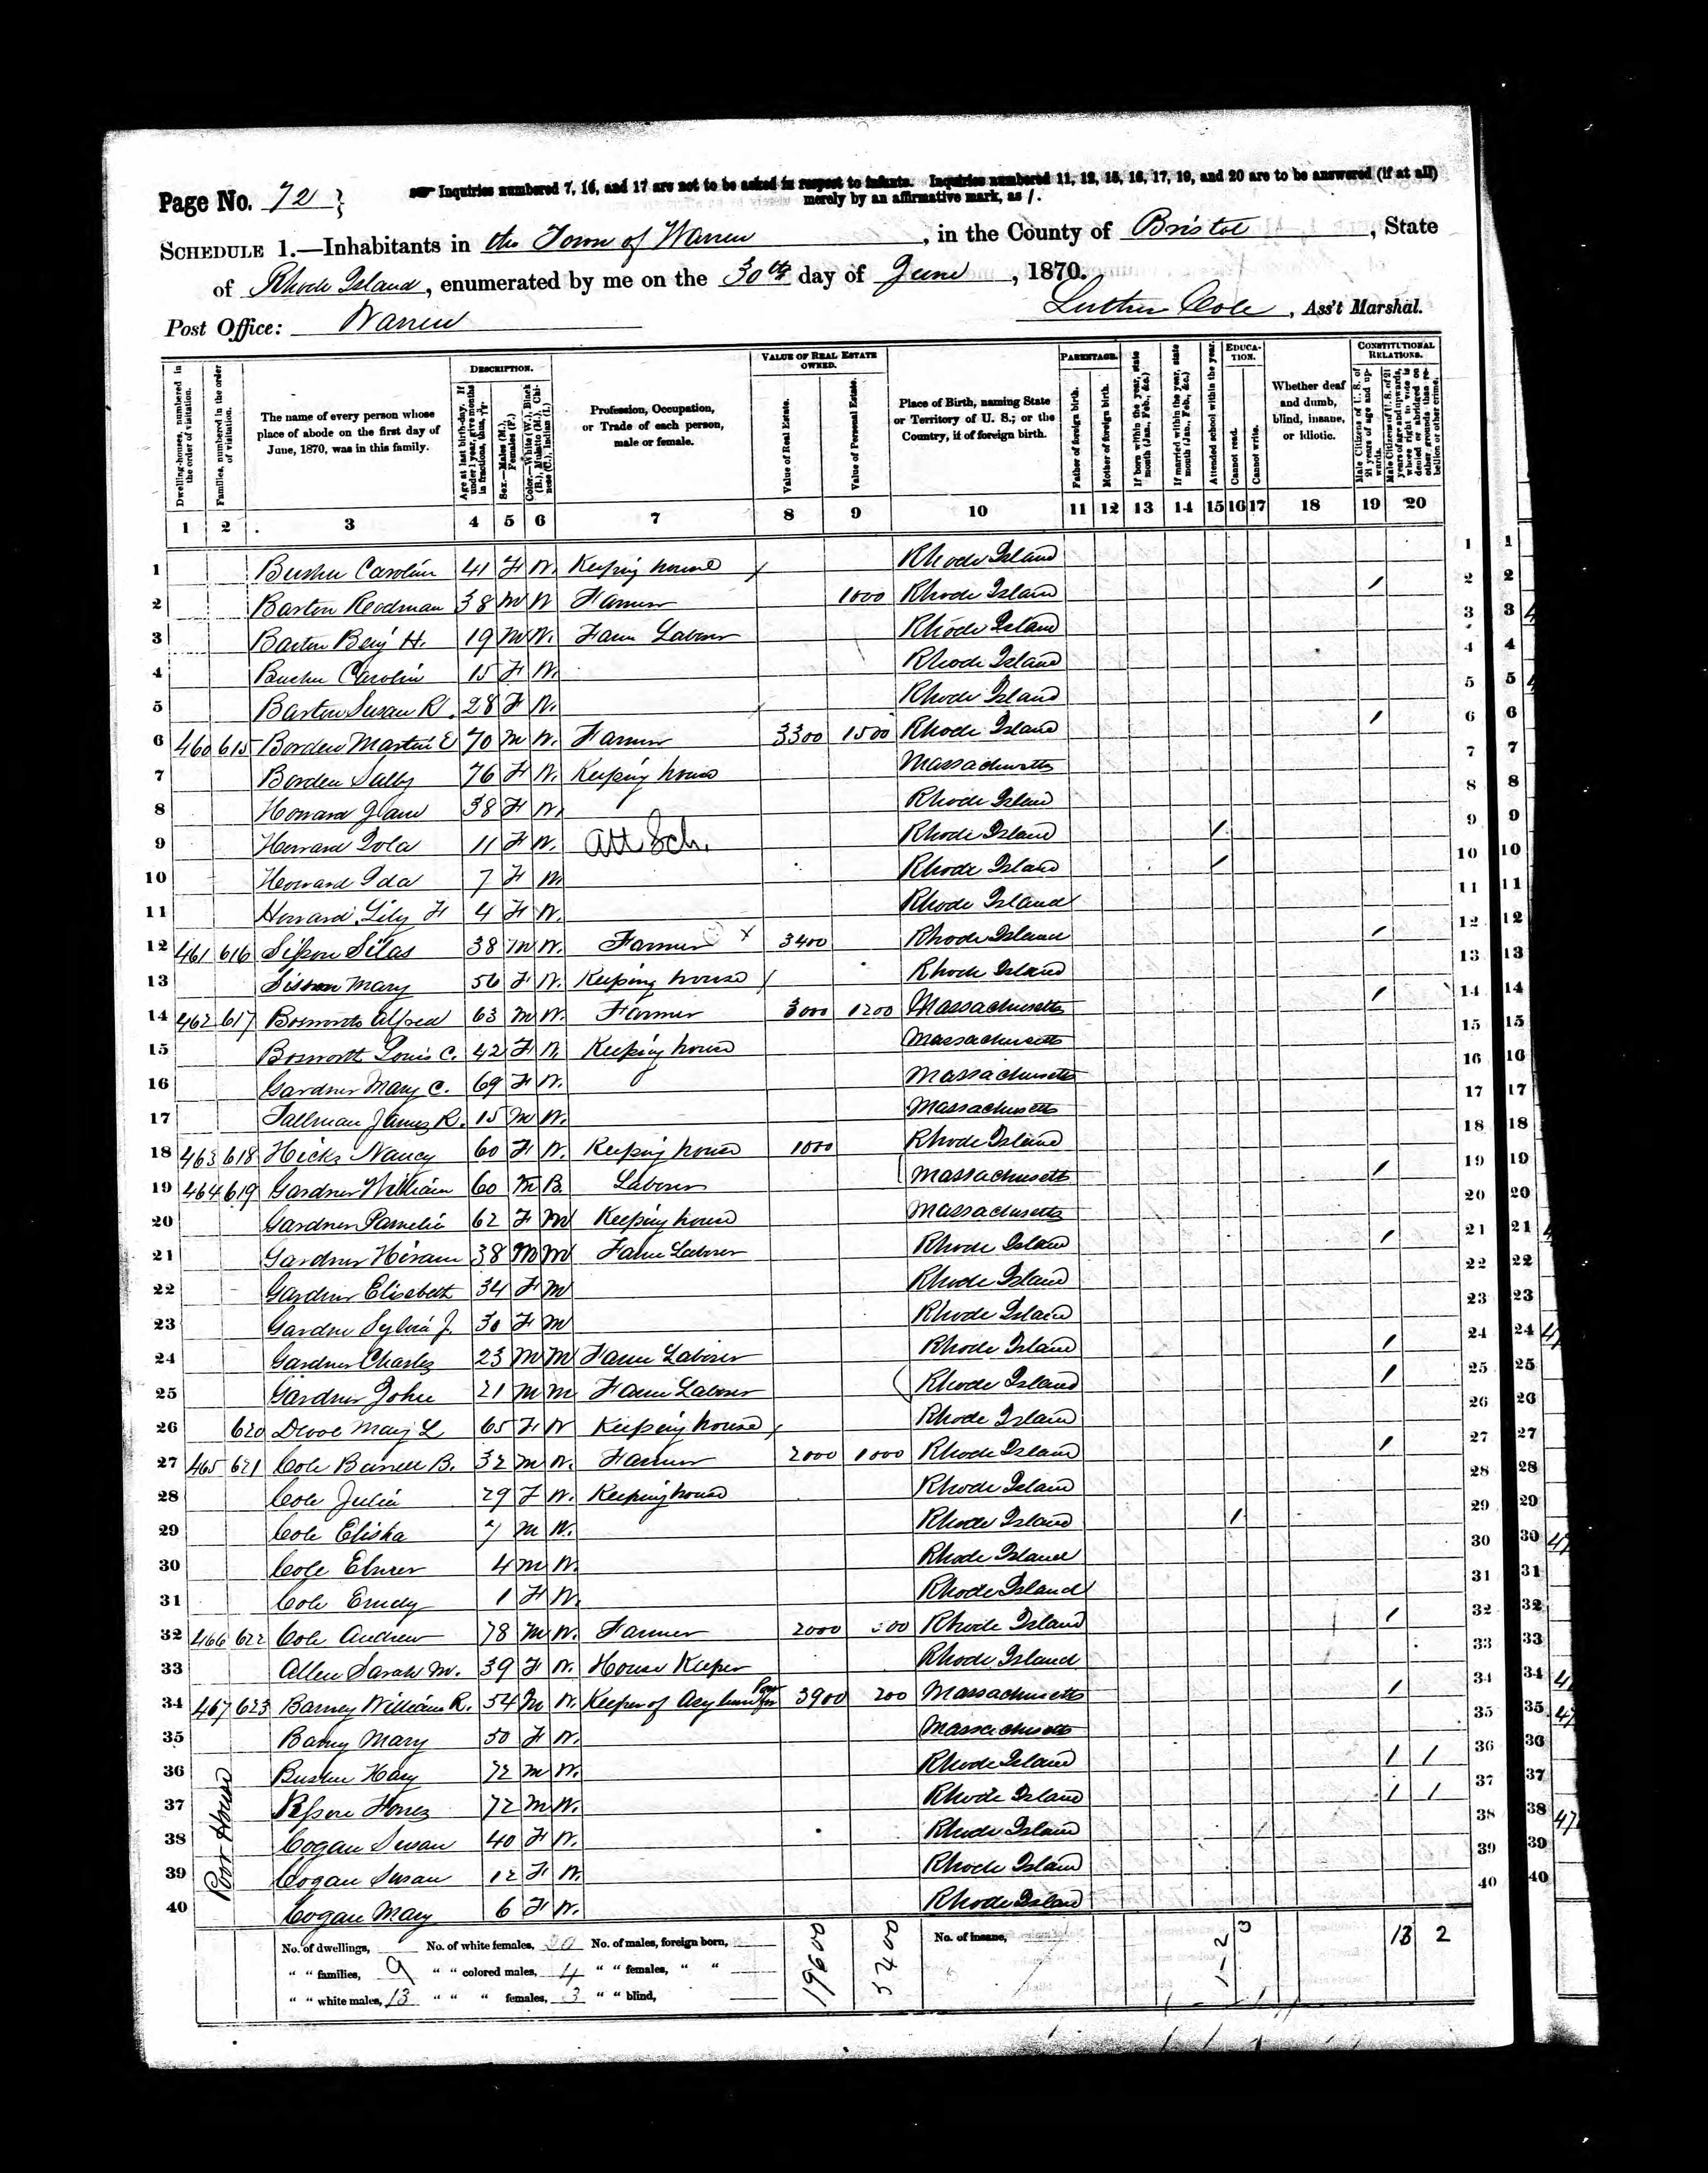 Page No. 72
Inquiries numbered 7, 16, and 17 are not to be asked in respect to infants. Inquiries numbered 11, 12, 15, 16, 17, 19, and 20 are to be answered (if at all)
merely by an affirmative mark, as /.
SCHEDULE 1.—Inhabitants in the Town of Warren, in the County of Bristol, State
of Rhode Island, enumerated by me on the 30th day of June, 1870.
Post Office: Warren
Luther Cole, Ass't Marshal.
Dwelling-houses, numbered in the order of visitation.
Families, numbered in the order of visitation.
The name of every person whose place of abode on the first day of June, 1870, was in this family.
DESCRIPTION.
Age at last birth-day. If under 1 year, give months in fractions, thus, 3/12
Sex.—Males (M.), Females (F.)
Color.—White (W.), Black (B.), Mulatto (M.), Chinese (C.), Indian (I.)
Profession, Occupation, or Trade of each person, male or female.
VALUE OF REAL ESTATE OWNED.
Value of Real Estate.
Value of Personal Estate.
Place of Birth, naming State or Territory of U. S.; or the Country, if of foreign birth.
PARENTAGE.
Father of foreign birth.
Mother of foreign birth.
If born within the year, state month (Jan., Feb., &c.)
If married within the year, state month (Jan., Feb., &c.)
Attended school within the year.
EDUCATION.
Cannot read.
Cannot write.
Whether deaf and dumb, blind, insane, or idiotic.
CONSTITUTIONAL RELATIONS.
Male Citizens of U. S. of 21 years of age and upwards.
Male Citizens of U. S. of 21 years of age and upwards, whose right to vote is denied or abridged on other grounds than rebellion or other crime.
1 2 3 4 5 6 7 8 9 10 11 12 13 14 15 16 17 18 19 20
1 Carolin 41 F W. Keeping house Rhode Island 1
2 Barton Rodman 38 M W Farmer 1000 Rhode Island / 2
3 Barton Benj H. 19 M W. Farm Laborer Rhode Island 3
4 Carolin 15 F W. Rhode Island 4
5 Barton Susan R. 28 F W. Rhode Island 5
6 460 615 Borden Martin E 70 M W. Farmer 3300 1500 Rhode Island / 6
7 Borden Sally 76 F W. Keeping house Massachusetts 7
8 Howard Jane 38 F W. Rhode Island 8
9 Howard Iola 11 F W. Att Sch. Rhode Island / 9
10 Howard Ida 7 F W Rhode Island / 10
11 Howard Lily F 4 F W. Rhode Island 11
12 461 616 Sisson Silas 38 M W. Farmer X 3400 Rhode Island / 12
13 Sisson Mary 56 F W. Keeping house Rhode Island 13
14 462 617 Bosworth Alfred 63 M W. Farmer 3000 1200 Massachusetts / 14
15 Bosworth Louis C. 42 F W. Keeping house Massachusetts 15
16 Gardner Mary C. 69 F W. Massachusetts 16
17 Tallman James R. 15 M W. Massachusetts 17
18 463 618 Hicks Nancy 60 F W. Keeping house 1000 Rhode Island 18
19 464 619 Gardner William 60 M B. Laborer Massachusetts / 19
20 Gardner Pamelia 62 F M Keeping house Massachusetts 20
21 Gardner Hiram 38 M M Farm Laborer Rhode Island / 21
22 Gardner Elisabeth 34 F M Rhode Island 22
23 Gardner Sylvia J. 30 F M Rhode Island 23
24 Gardner Charles 23 M M Farm Laborer Rhode Island / 24
25 Gardner John 21 M M Farm Laborer Rhode Island / 25
26 620 Mary L 65 F W Keeping house Rhode Island 26
27 465 621 Cole B. 32 M W. Farmer 2000 1000 Rhode Island / 27
28 Cole Julia 29 F W. Keeping house Rhode Island 28
29 Cole Elisha 7 M W. Rhode Island / 29
30 Cole Elmer 4 M W. Rhode Island 30
31 Cole 1 F W. Rhode Island 31
32 466 622 Cole Andrew 78 M W. Farmer 2000 Rhode Island / 32
33 Allen Sarah M. 39 F W. House Keeper Rhode Island 33
34 467 623 Barney William R. 54 M W. Keeper of Asylum for Poor 3900 200 Massachusetts / 34
35 Barney Mary 50 F W. Massachusetts 35
36 72 M W. Rhode Island / / 36
37 72 M W. Rhode Island / / 37
38 Cogan Susan 40 F W. Rhode Island 38
39 Cogan Susan 12 F W. Rhode Island 39
40 Cogan Mary 6 F W. Rhode Island 40
Poor House
No. of dwellings, No. of white females, 20 No. of males, foreign born, 19600 5400 No. of insane, 13 2
" " families, 9 " " colored males, 4 " " females, " "
" " white males, 13 " " " females, 3 " " blind,